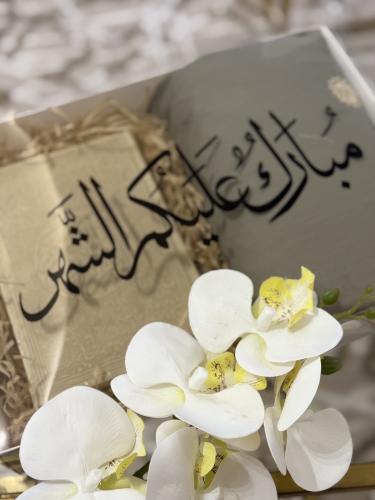 مُبارَكٌ عَليَكُم الشَّهر